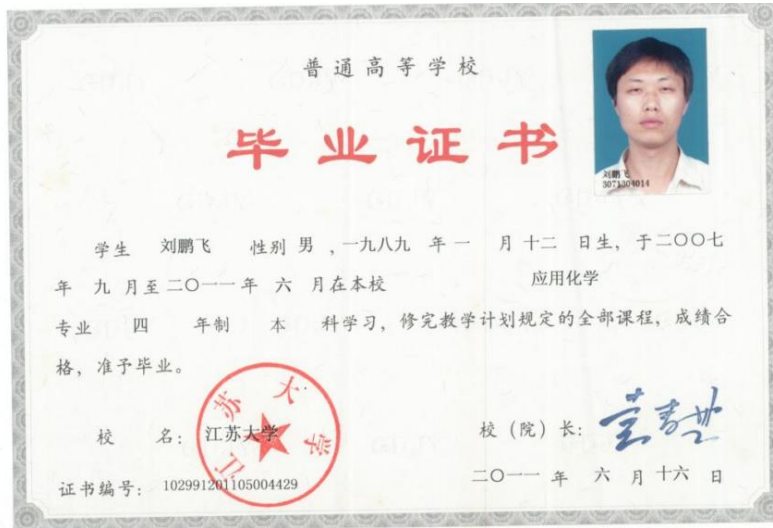 普通高等学校
毕业证书
刘鹏飞
3071304014
学生 刘鹏飞 性别 男 ,一九八九 年 一 月 十二 日生, 于二〇〇七
年 九 月至 二〇一一 年 六 月在本校 应用化学
专业 四 年制 本 科学习, 修完教学计划规定的全部课程, 成绩合
格, 准予毕业。
江苏大学
校 名: 江苏大学 校(院)长:
证书编号: 102991201105004429 二〇一一 年 六 月 十六 日